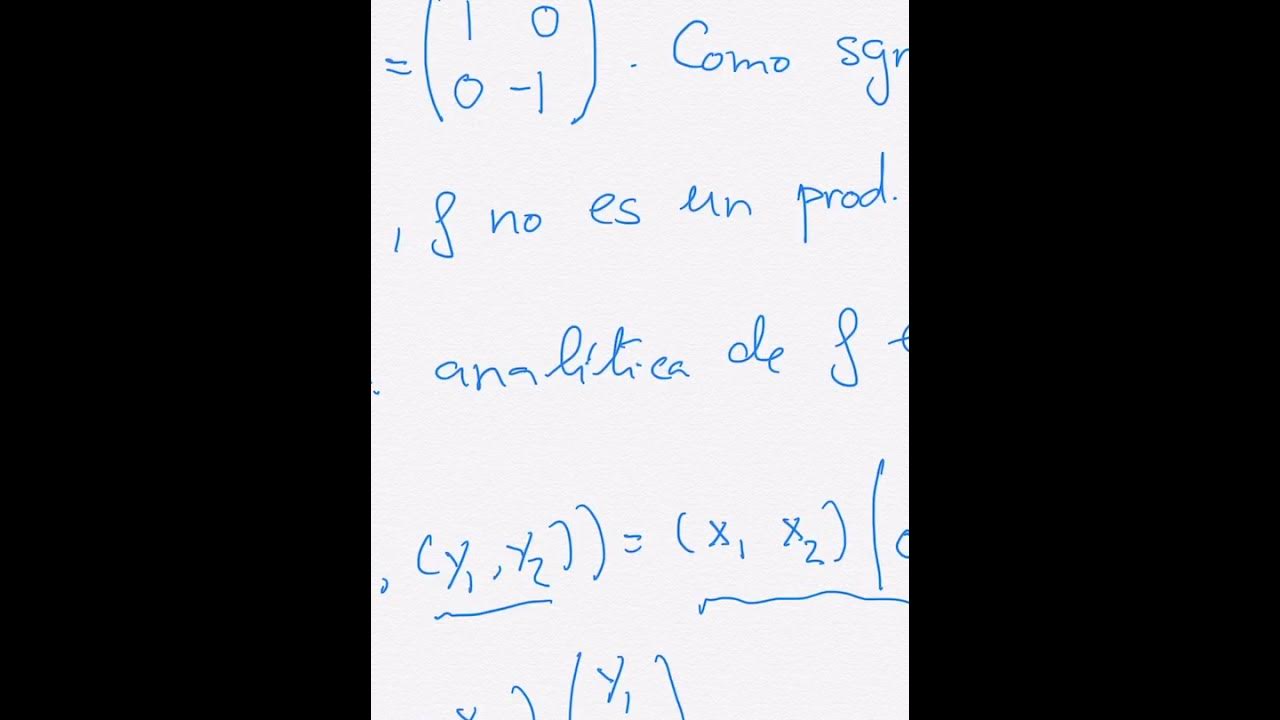 = ( 1 0
0 -1 ) . Como sg
, f no es un prod.
analítica de f
, (y₁, y₂)) = (x₁ x₂) (
) ( y₁